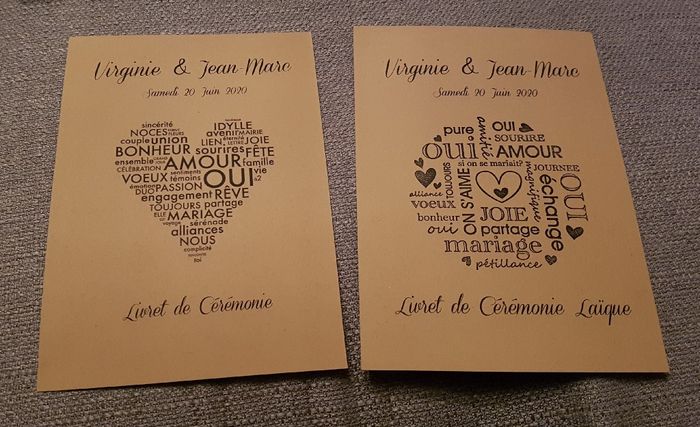 Virginie & Jean-Marc
Samedi 20 Juin 2020
sincérité
NOCES
couple union
BONHEUR
ensemble
CÉLÉBRATION
VOEUX
sentiments
témoins
émotion
DUO PASSION
engagement
TOUJOURS partage
ELLE MARIAGE
voyage sérénade
alliances
NOUS
complicité
rencontre
toi
IDYLLE
avenir MAIRIE
éternité
LIEN LETTRE JOIE
sourires FÊTE
AMOUR famille
OUI vie
à2
RÊVE
Livret de Cérémonie
Virginie & Jean-Marc
Samedi 20 Juin 2020
pure amitié OUI
SOURIRE
oui AMOUR
si on se mariait?
JOURNEE
TOUJOURS
ON S'AIME
magnifique
échange
OUI
alliance
voeux
bonheur JOIE
oui partage
mariage
pétillance
Livret de Cérémonie Laïque